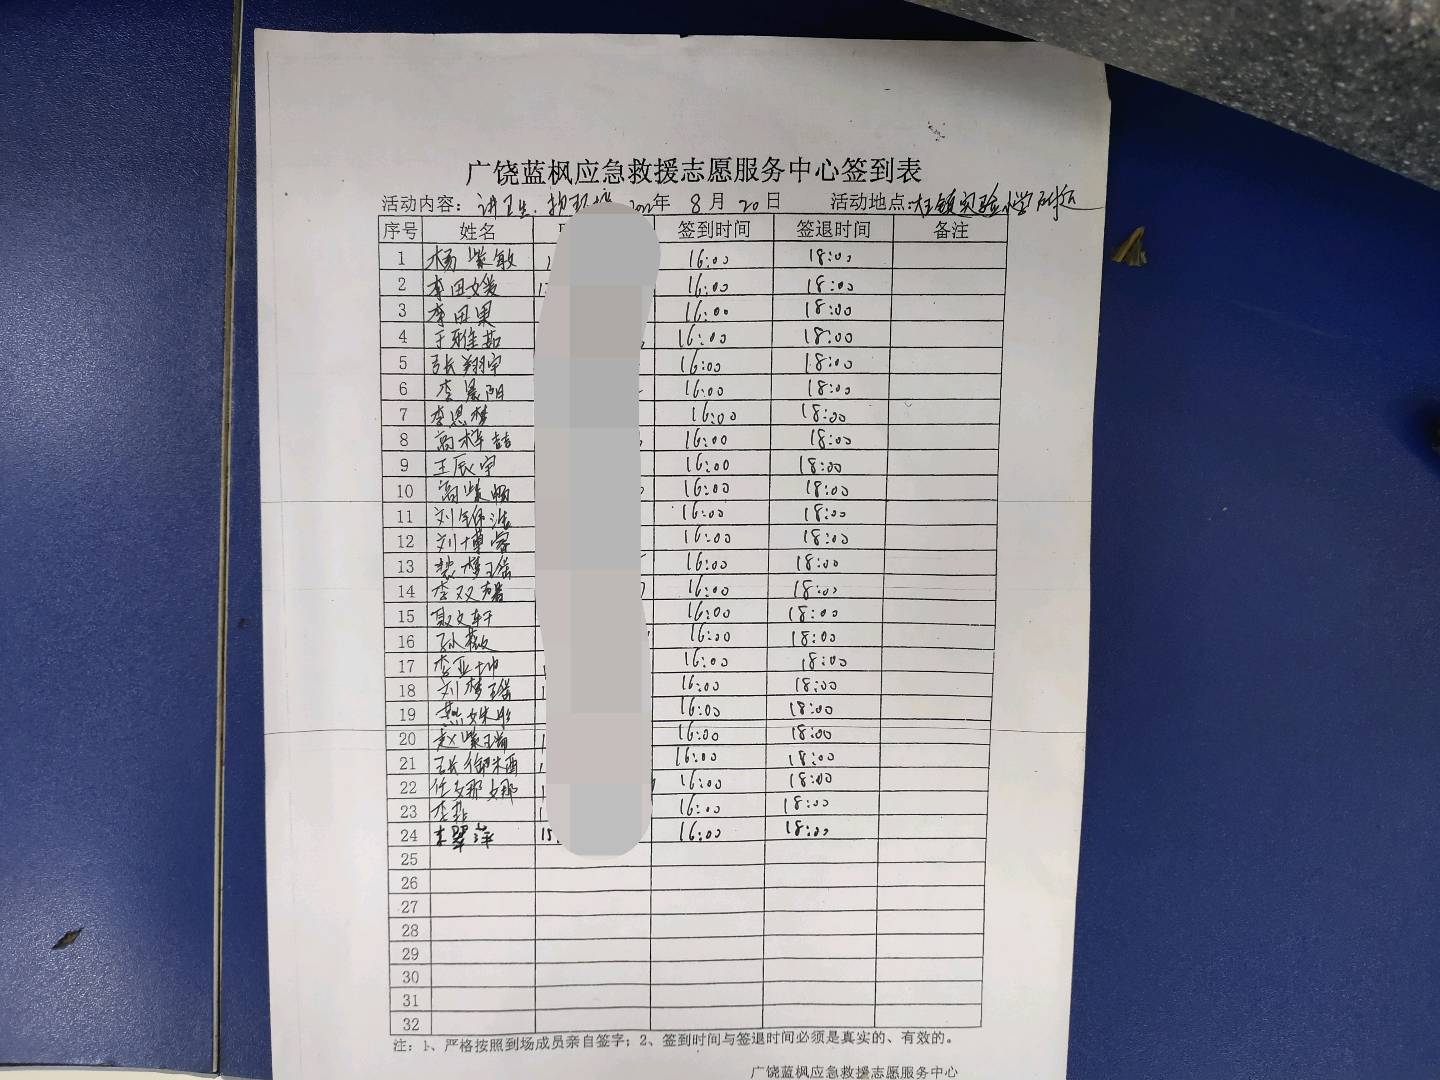 广饶蓝枫应急救援志愿服务中心签到表
活动内容: 讲卫生. 年 8 月 20 日 活动地点: 镇实验小学附近
序号 姓名 签到时间 签退时间 备注
1 杨紫敏 16:00 18:00
2 李田媛 16:00 18:00
3 李田果 16:00 18:00
4 于雅茹 16:00 18:00
5 张翔宇 16:00 18:00
6 李晨阳 16:00 18:00
7 李思梦 16:00 18:00
8 高梓喆 16:00 18:00
9 王辰宇 16:00 18:00
10 高紫畅 16:00 18:00
11 刘 16:00 18:00
12 刘博睿 16:00 18:00
13 梦瑶 16:00 18:00
14 李双 16:00 18:00
15 聂文轩 16:00 18:00
16 孙薇 16:00 18:00
17 李亚坤 16:00 18:00
18 刘梦瑶 16:00 18:00
19 燕姝彤 16:00 18:00
20 赵紫瑜 16:00 18:00
21 16:00 18:00
22 任 16:00 18:00
23 李菲 16:00 18:00
24 李翠萍 15 16:00 18:00
25
26
27
28
29
30
31
32
注: 1、严格按照到场成员亲自签字; 2、签到时间与签退时间必须是真实的、有效的。
广饶蓝枫应急救援志愿服务中心